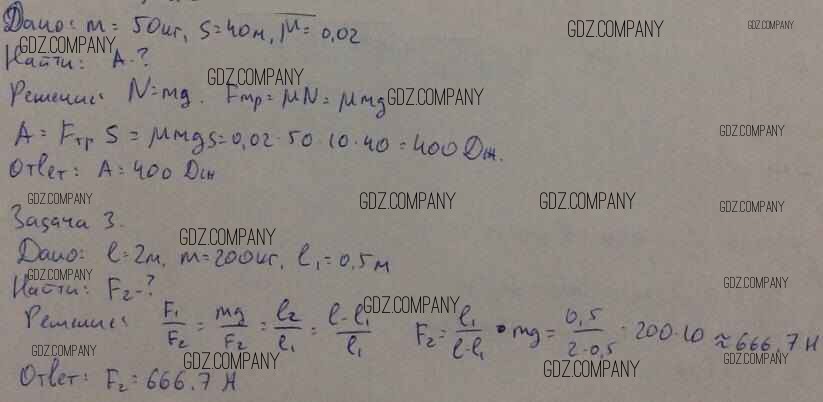 Дано: m = 50кг, S = 40м, μ = 0,02
GDZ.COMPANY
GDZ.COMPANY
GDZ.COMPANY
Найти: A-?
GDZ.COMPANY
Решение: N=mg. Fтр = μN = μmg
GDZ.COMPANY
GDZ.COMPANY
A = Fтр S = μmgs = 0,02·50·10·40 = 400 Дж.
Ответ: A = 400 Дж
GDZ.COMPANY
GDZ.COMPANY
GDZ.COMPANY
GDZ.COMPANY
Задача 3.
GDZ.COMPANY
Дано: l = 2м, m = 200кг, l₁ = 0,5м
GDZ.COMPANY
GDZ.COMPANY
Найти: F₂-?
GDZ.COMPANY
Решение: F₁/F₂ = mg/F₂ = l₂/l₁ = l-l₁/l₁ F₂ = l₁/l-l₁ · mg = 0,5/2-0,5 · 200·10 ≈ 666,7 Н
GDZ.COMPANY
GDZ.COMPANY
GDZ.COMPANY
GDZ.COMPANY
Ответ: F₂ = 666,7 Н